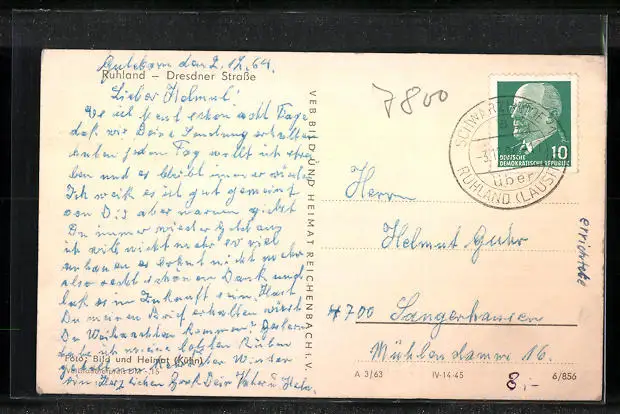 Guteborn den 2.12.64.
Ruhland – Dresdner Straße
Lieber Helmut!
es ist heut schon acht Tage
daß wir Deine Sendung erhalten
haben jeden Tag wollt ich
ben und es bleibt immer wieder
Ich weiß es ist gut gemeint
von Dir aber warum giebst
Du immer wieder Geld aus
ich will nicht mehr so viel
es lohnt nicht mehr
also recht schönen Dank und
laß es in Zukunft sein. Hast
Du meinen Brief erhalten wirst
Du Weihnachten kommen? Gestern
habe ich meine letzten Rüben
Foto: Bild und Heimat (Kühn)
Winter
ein. Herzlichen Gruß Dein Vater u.
VEB BILD UND HEIMAT REICHENBACH i. V.
7800
DEUTSCHE
DEMOKRATISCHE REPUBLIK
10
über
RUHLAND (LAUSITZ)
Herrn
Helmut Guhr
4700 Sangerhausen
Mühlendamm 16.
A 3/63 IV-14-45 6/856
8,-